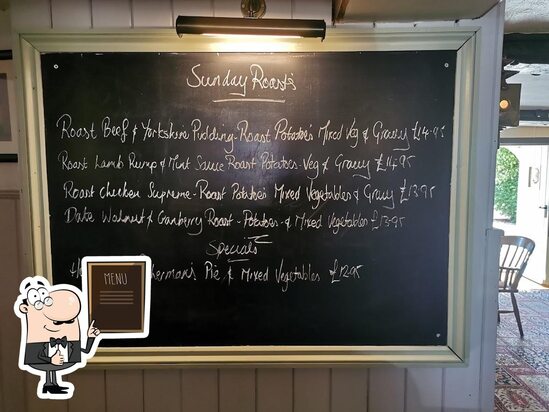 Sunday Roasts
Roast Beef & Yorkshire Pudding - Roast Potatoe's Mixed Veg & Gravy £14.95
Roast Lamb Rump & Mint Sauce Roast Potatoes - Veg & Gravy £14.95
Roast Chicken Supreme - Roast Potatoe's Mixed Vegetables & Gravy £13.95
Date Walnut & Cranberry Roast - Potatoes - & Mixed Vegetables £13.95
Specials
Pie & Mixed Vegetables £12.95
MENU